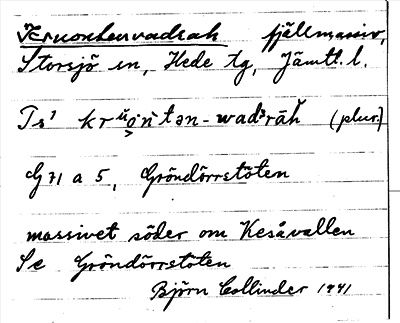 Kruonhenvadsah fjällmassiv,
Storsjö sn, Hede tg, Jämtl. l.
Ts¹ kruo̭ntən-wadᵊrāh (plur.)
G 71 a 5, Gröndörrstöten
massivet söder om Kesåvallen
Se Gröndörrstöten
Björn Collinder 1941